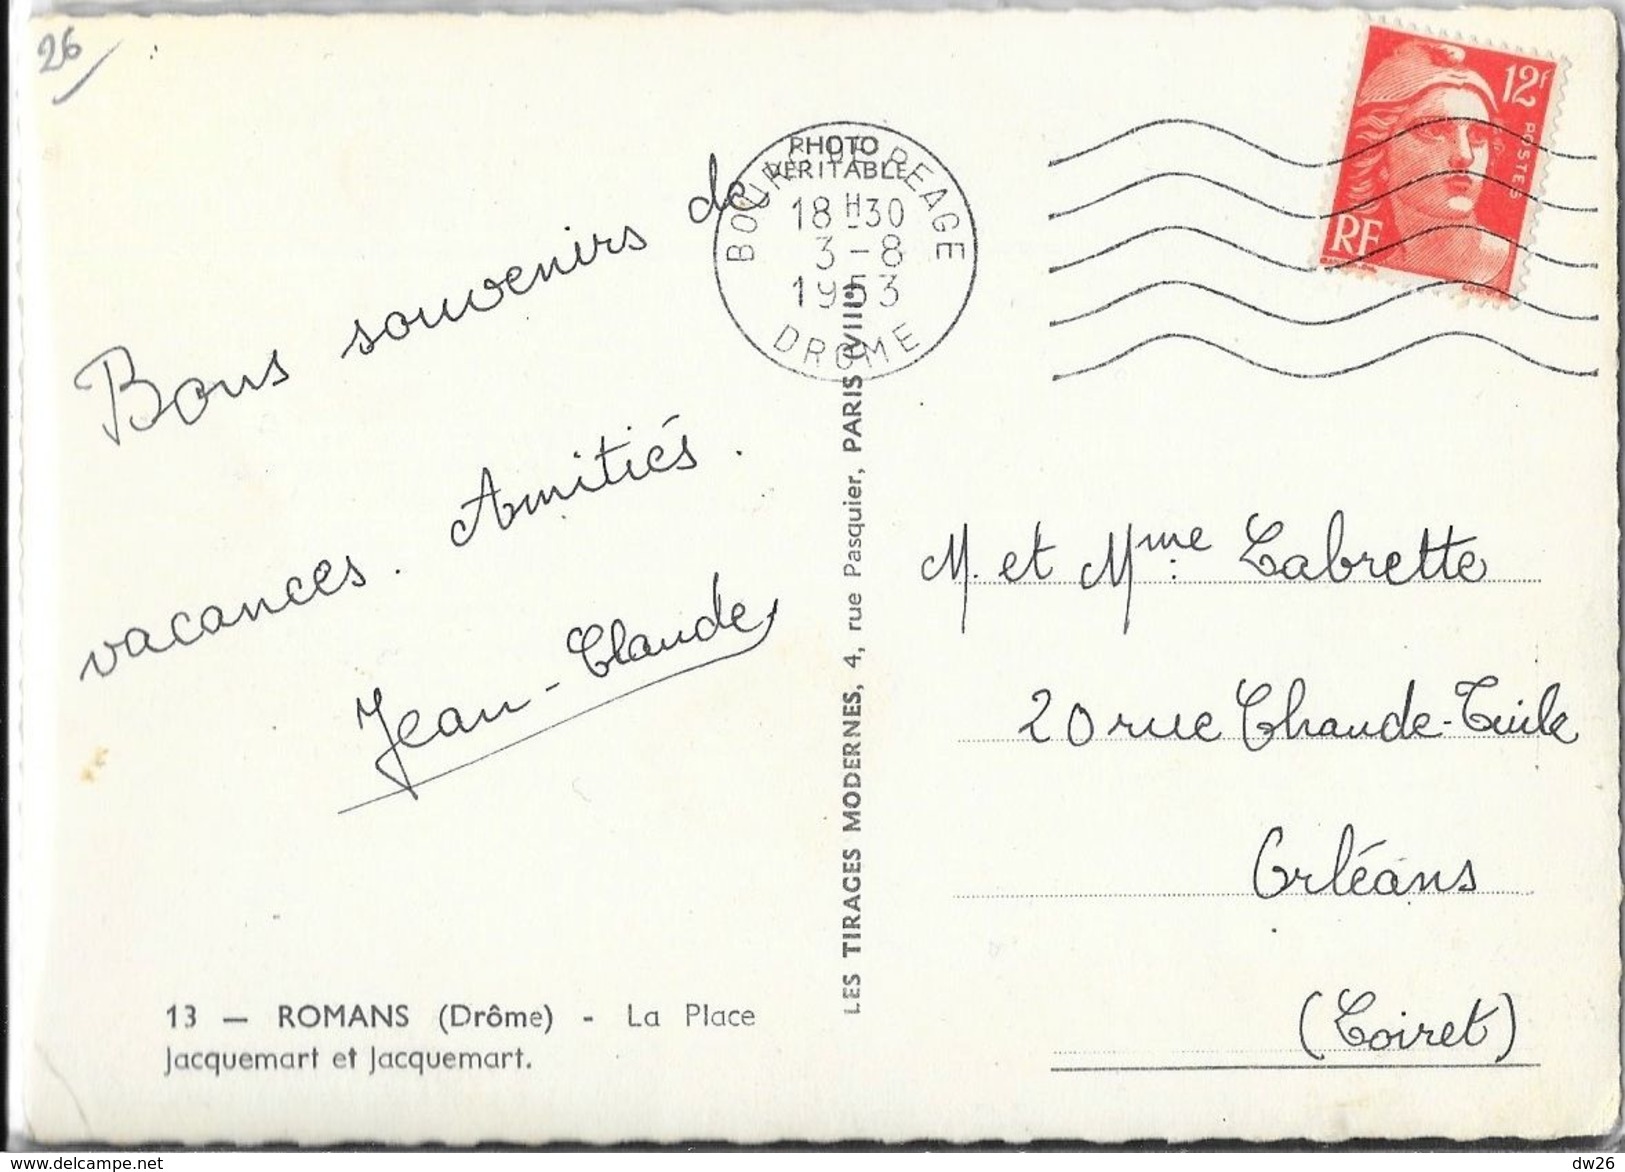 26
Bons souvenirs de
vacances. Amitiés.
Jean-Claude
13 — ROMANS (Drôme) - La Place
Jacquemart et Jacquemart.
PHOTO
VERITABLE
BOURG DE PEAGE
18 H 30
3 - 8
1953
DROME
LES TIRAGES MODERNES, 4, rue Pasquier, PARIS (VIIIe)
12f
POSTES
RF
M. et Mme Labrette
20 rue Chaude-Tuile
Orléans
(Loiret)
delcampe.net
dw26